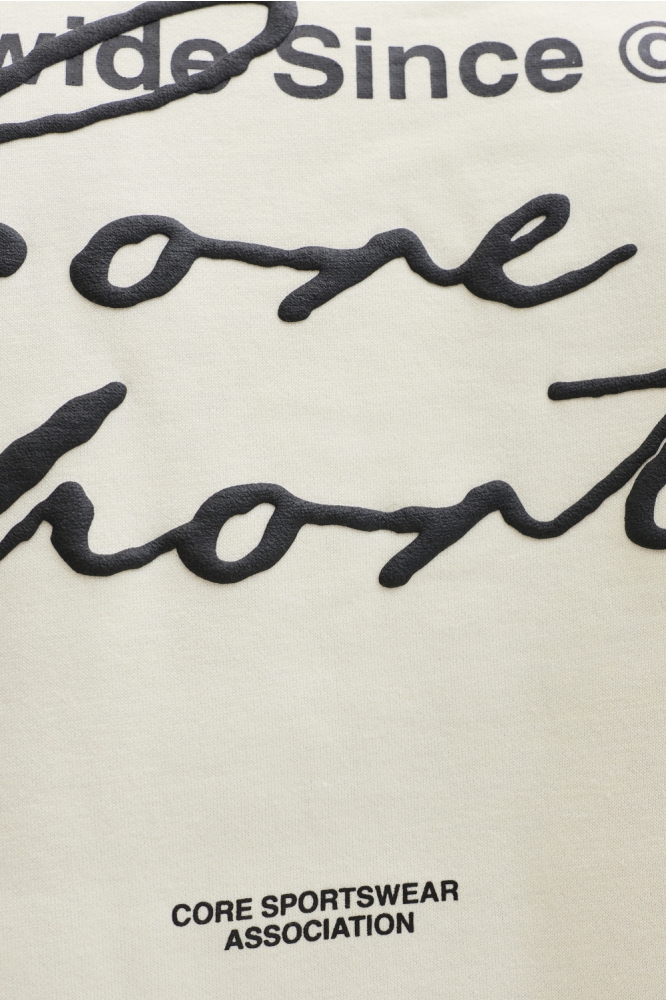 wide Since ©
ore
port
CORE SPORTSWEAR
ASSOCIATION